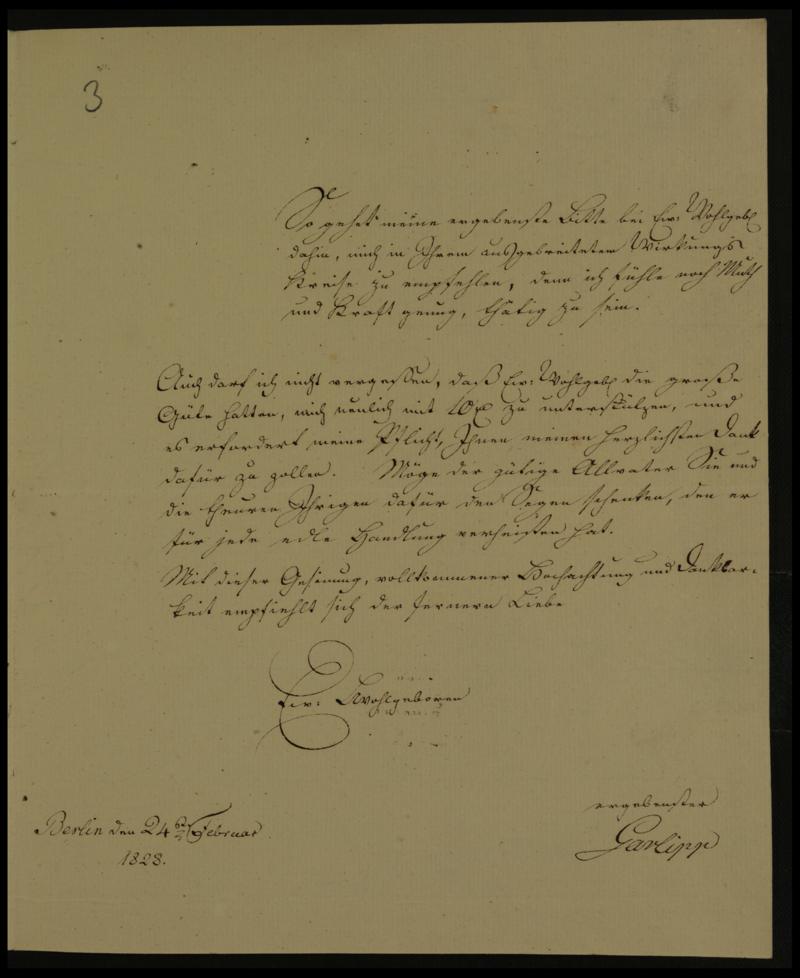 3
So gehet meine ergebenste Bitte bei Ew: Wohlgeb
dahin, mich in Ihrem ausgebreiteten Wirkungs
Kreise zu empfehlen, denn ich fühle noch Muth
und Kraft genug, thätig zu sein.
Auch darf ich nicht vergessen, daß Ew: Wohlgeb die große
Güte hatten, mich neulich mit 10 zu unterstützen, und
es erfordert meine Pflicht, Ihnen meinen herzlichsten Dank
dafür zu zollen. Möge der gütige Allvater Sie und
die theuren Ihrigen dafür den Segen schenken, den er
für jede edle Handlung verheißen hat.
Mit dieser Gesinnung, vollkommener Hochachtung und Dankbar-
keit empfiehlt sich der fernern Liebe
Ew: Wohlgeboren
ergebenster
Garlipp
Berlin den 24 Februar
1828.